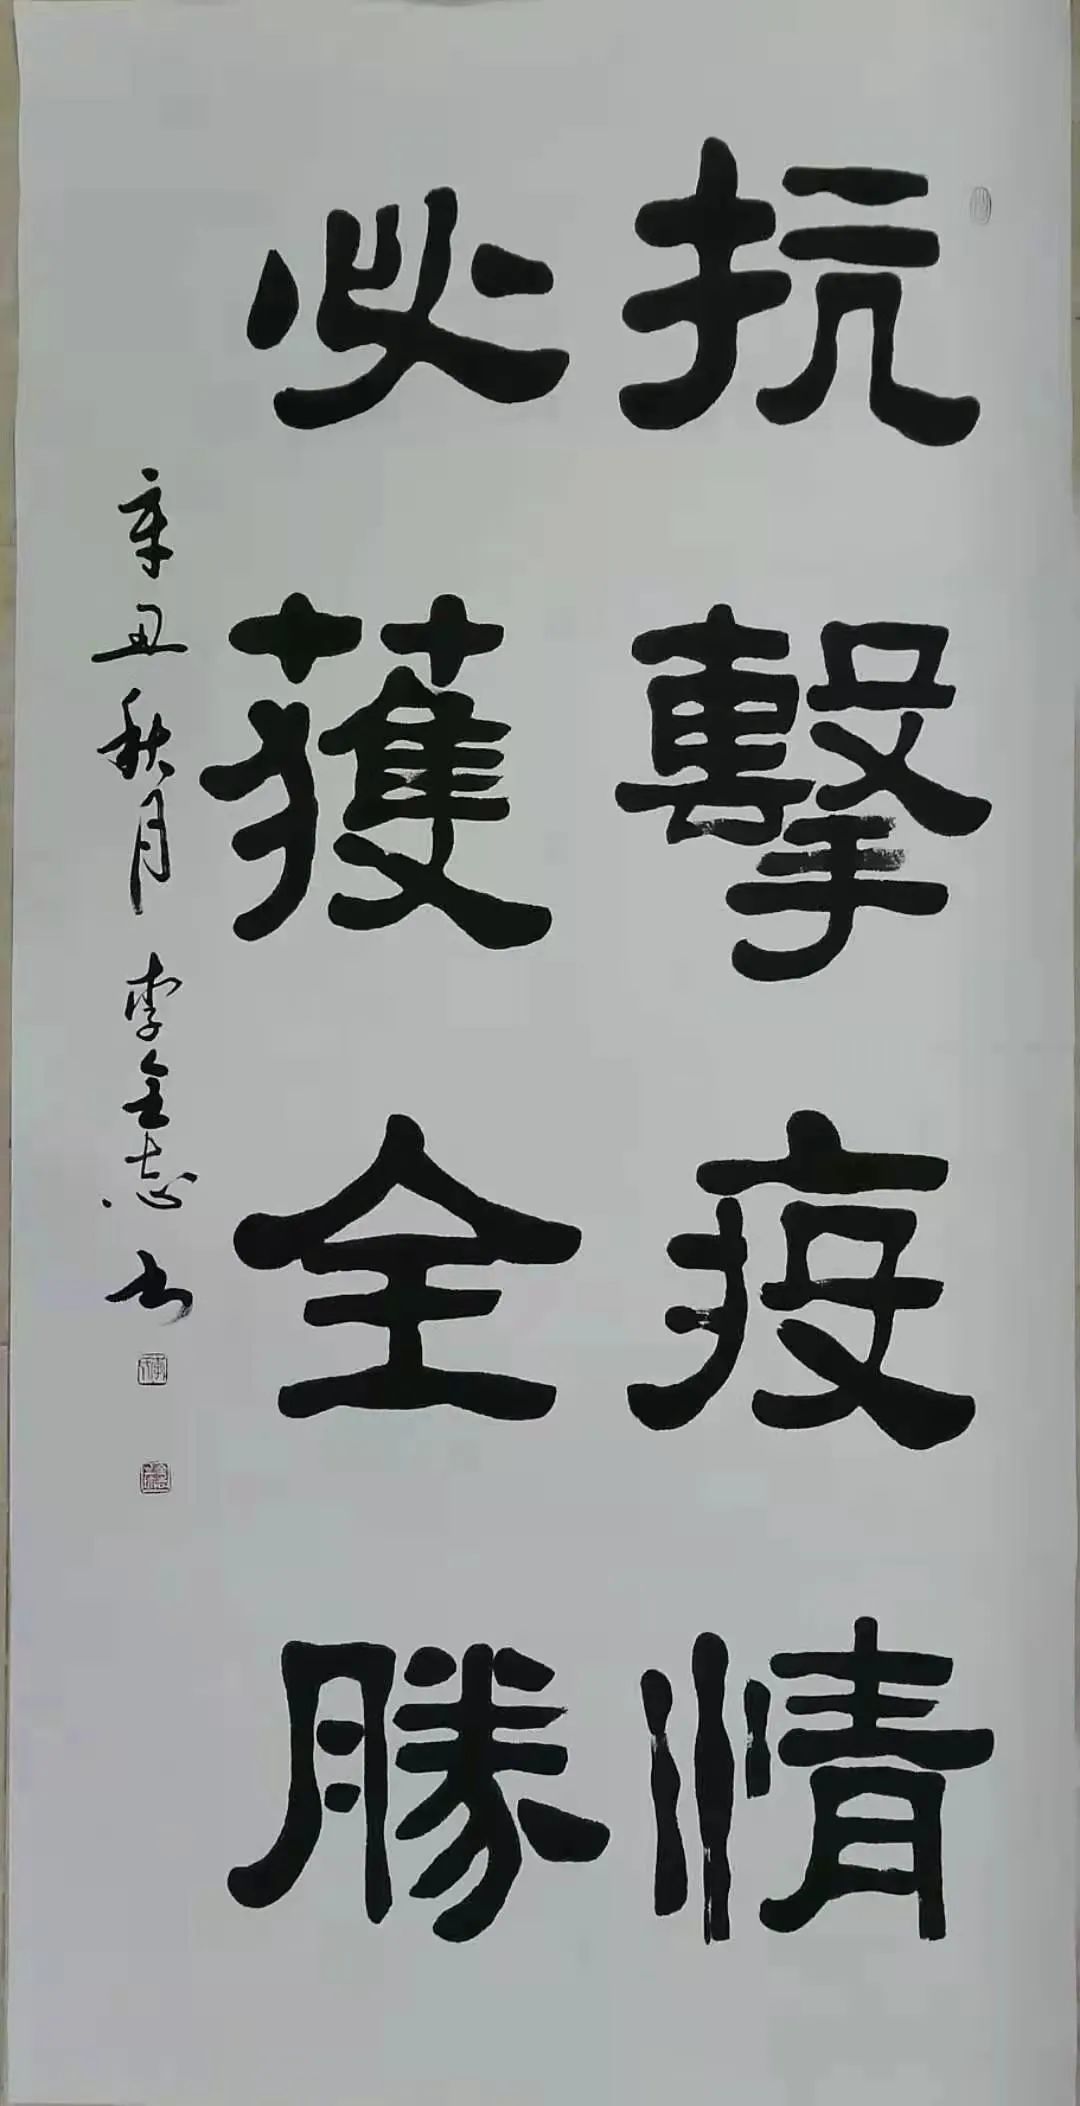 抗擊疫情
必獲全勝
辛丑秋月 李金志书